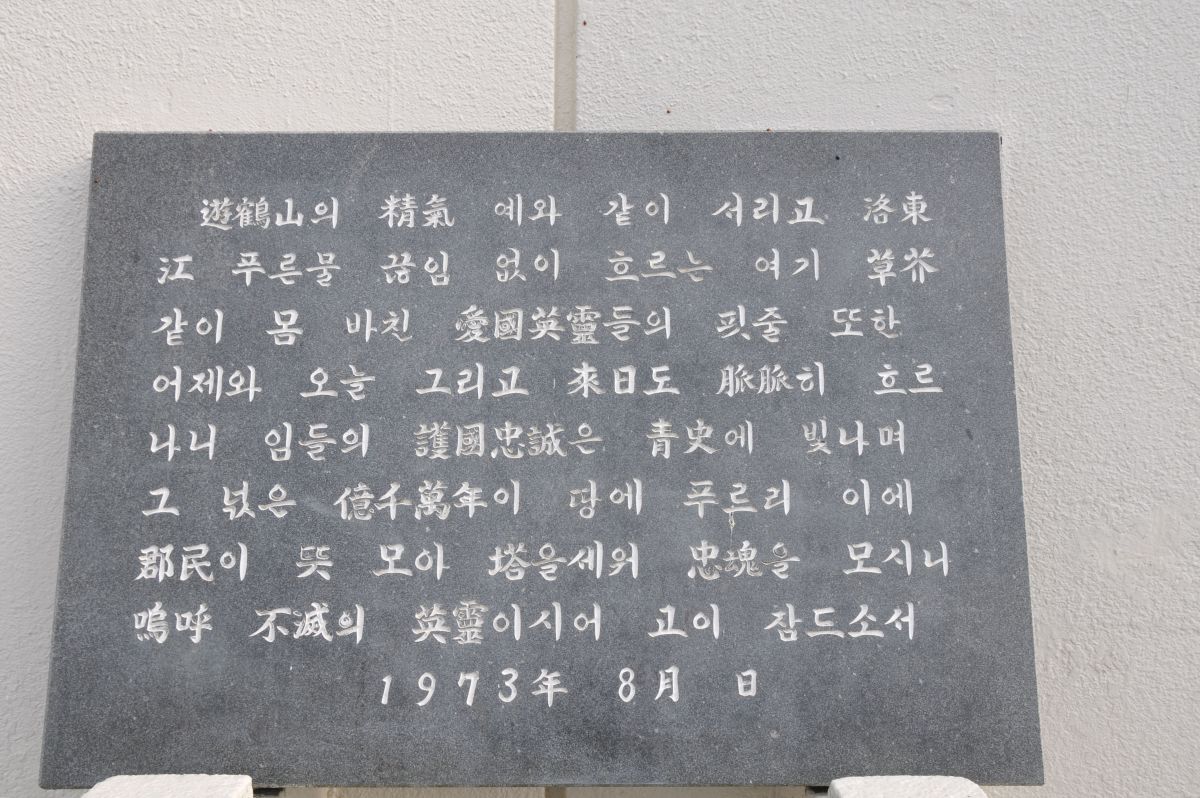 遊鶴山의 精氣 예와 같이 서리고 洛東
江 푸른물 끊임 없이 흐르는 여기 草芥
같이 몸 바친 愛國英靈들의 핏줄 또한
어제와 오늘 그리고 來日도 脈脈히 흐르
나니 임들의 護國忠誠은 靑史에 빛나며
그 넋은 億千萬年이 땅에 푸르리 이에
郡民이 뜻 모아 塔을세워 忠魂을 모시나
嗚呼 不滅의 英靈이시어 고이 잠드소서
1973年 8月 日